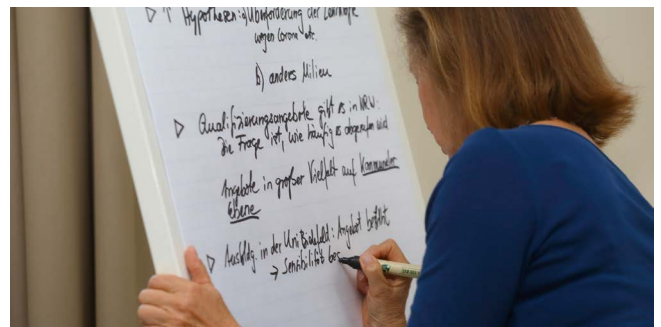 ▷ ↑ Hypothesen: a) Überforderung der Lehrkräfte
wegen Corona etc.
b) anders Milieu
▷ Qualifizierungsangebote gibt es in NRW:
Die Frage ist, wie häufig es abgerufen wird
Angebote in großer Vielfalt auf Kommunaler
Ebene
▷ Ausbildg. in der Uni Bielefeld: Angebot besteht
→ Sensibilität bes